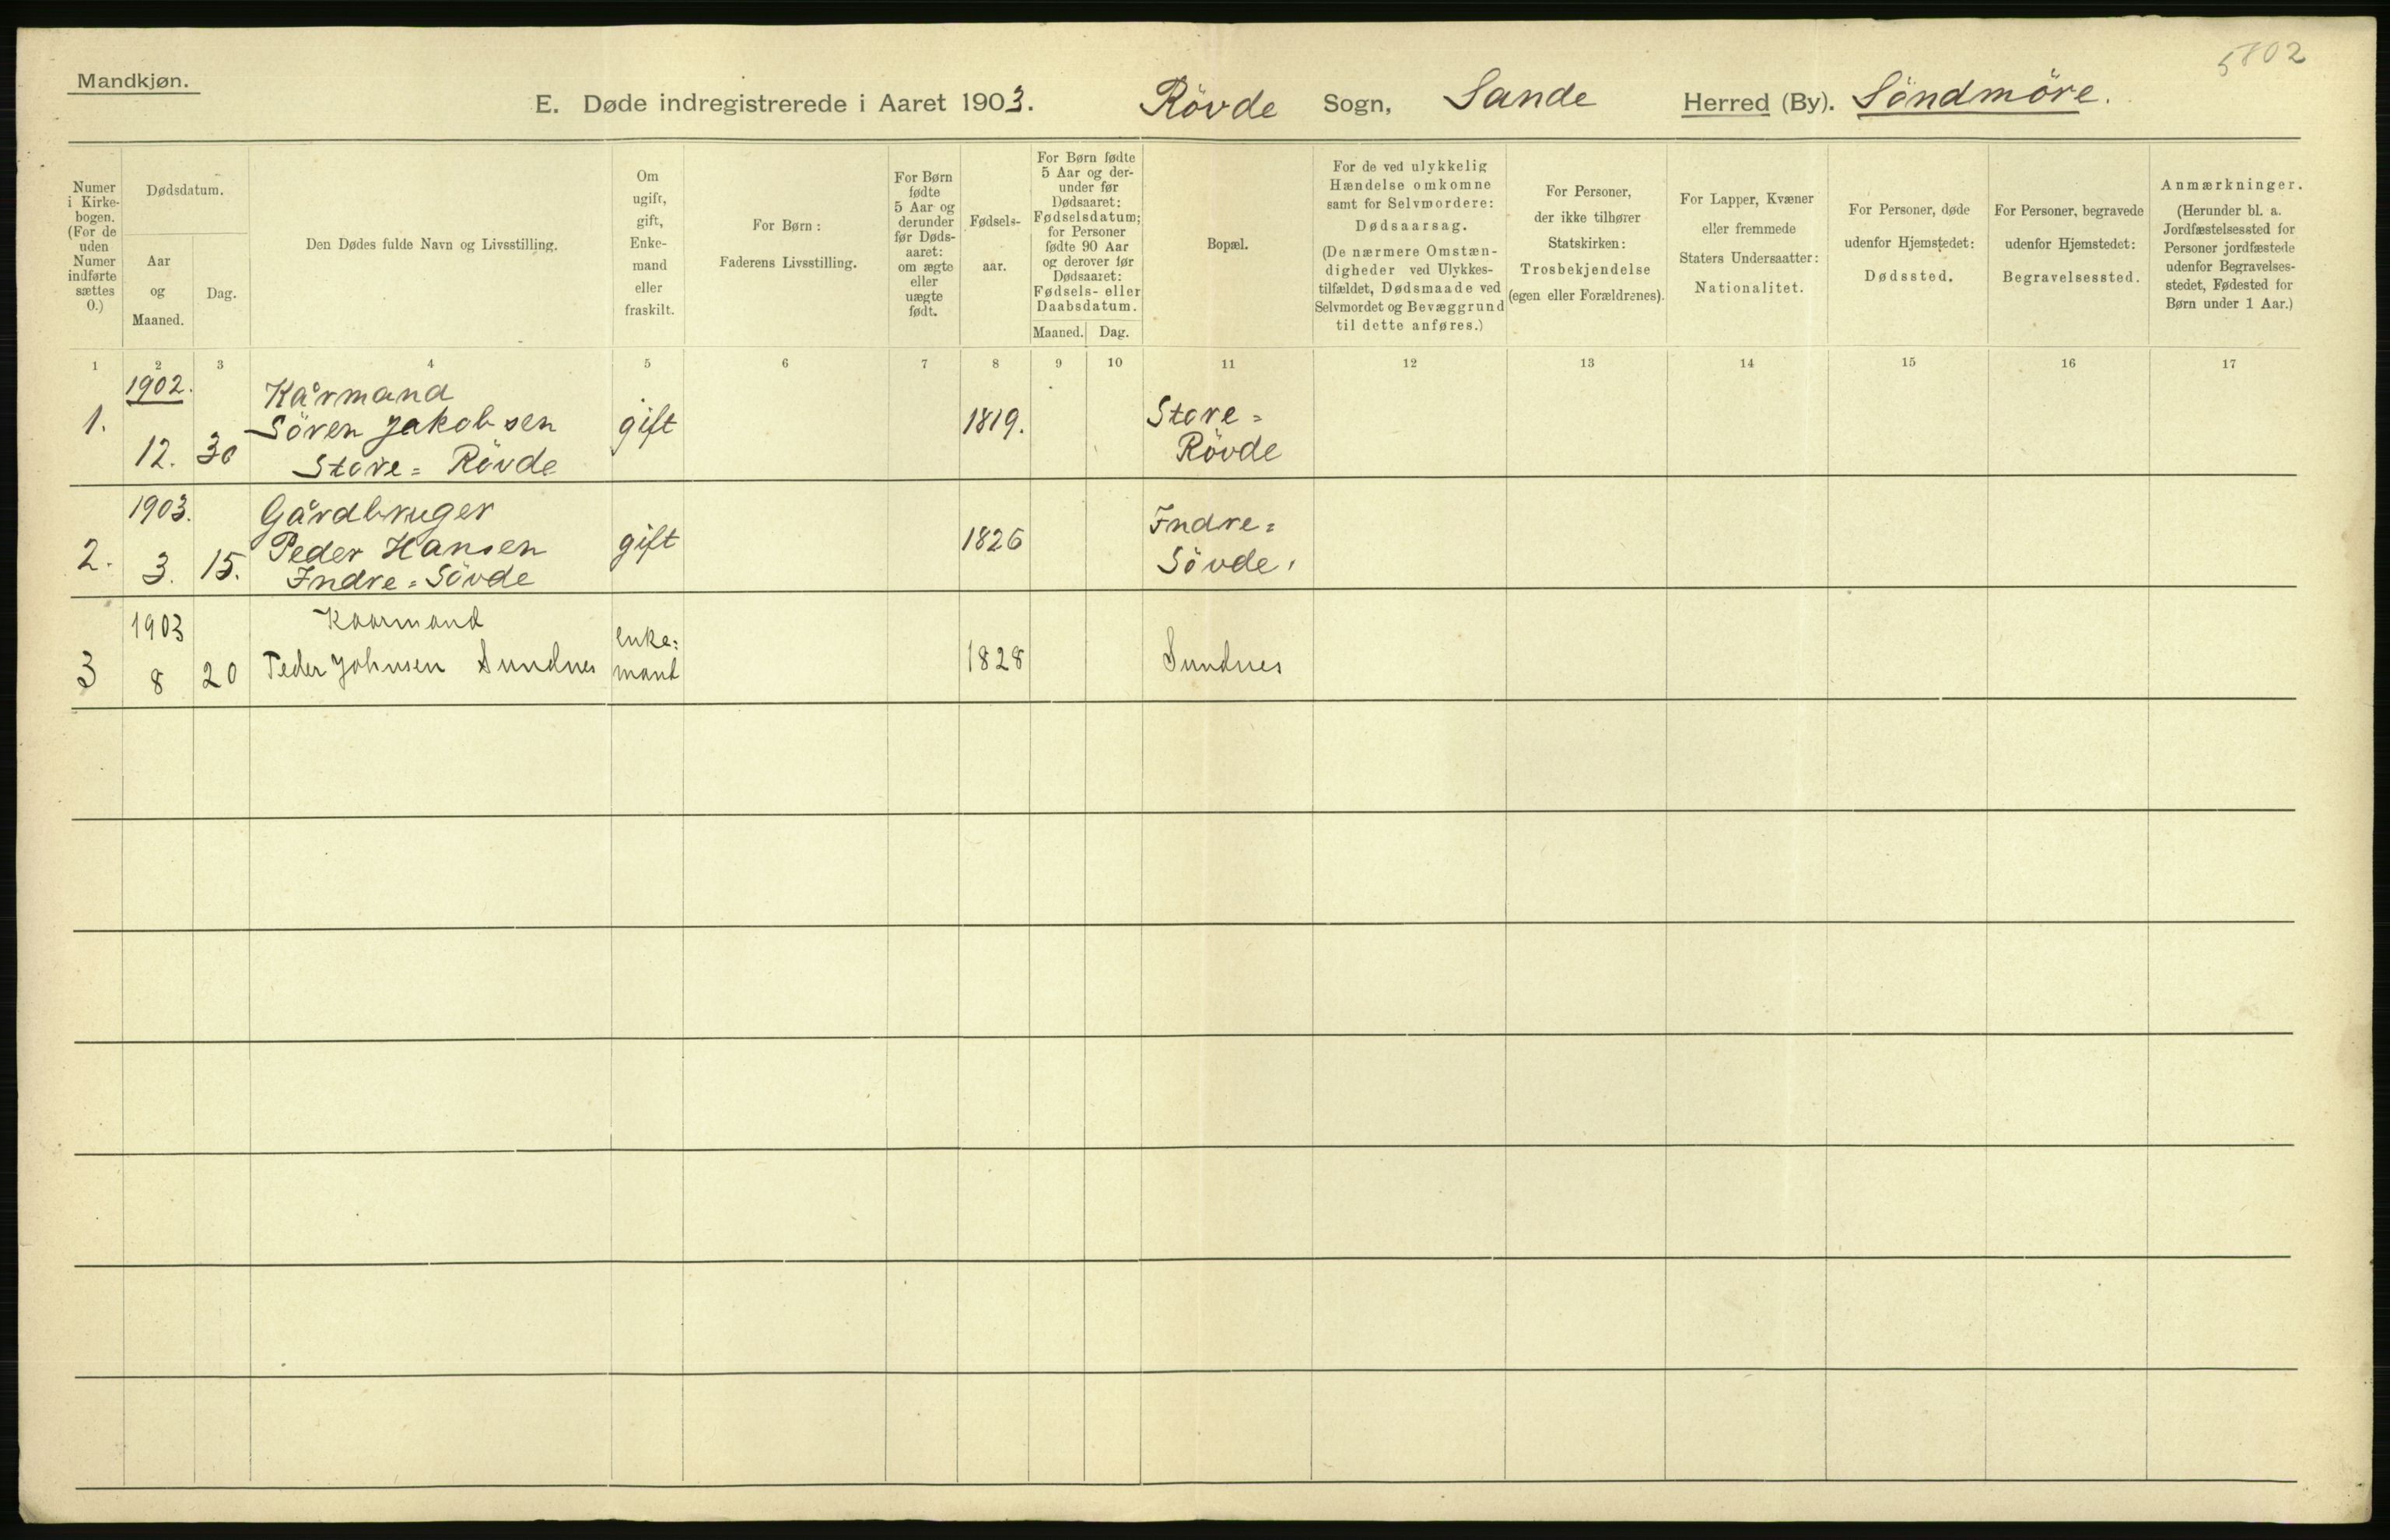 5802
Mandkjøn.
E. Døde indregistrerede i Aaret 1903. Rövde Sogn, Sande Herred (By). Söndmöre.
Numer
i Kirke-
bogen.
(For de
uden
Numer
indførte
sættes
0.)
Dødsdatum.
Aar
og
Maaned.
Dag.
Den Dødes fulde Navn og Livsstilling.
Om
ugift,
gift,
Enke-
mand
eller
fraskilt.
For Børn:
Faderens Livsstilling.
For Børn
fødte
5 Aar og
derunder
før Døds-
aaret:
om ægte
eller
uægte
født.
Fødsels-
aar.
For Børn fødte
5 Aar og der-
under før
Dødsaaret:
Fødselsdatum;
for Personer
fødte 90 Aar
og derover før
Dødsaaret:
Fødsels- eller
Daabsdatum.
Maaned. Dag.
Bopæl.
For de ved ulykkelig
Hændelse omkomne
samt for Selvmordere:
Dødsaarsag.
(De nærmere Omstæn-
digheder ved Ulykkes-
tilfældet, Dødsmaade ved
Selvmordet og Bevæggrund
til dette anføres.)
For Personer,
der ikke tilhører
Statskirken:
Trosbekjendelse
(egen eller Forældrenes).
For Lapper, Kvæner
eller fremmede
Staters Undersaatter:
Nationalitet.
For Personer, døde
udenfor Hjemstedet:
Dødssted.
For Personer, begravede
udenfor Hjemstedet:
Begravelsessted.
Anmærkninger.
(Herunder bl. a.
Jordfæstelsessted for
Personer jordfæstede
udenfor Begravelses-
stedet, Fødested for
Børn under 1 Aar.)
1 2 3 4 5 6 7 8 9 10 11 12 13 14 15 16 17
1902.
1.
12. 30
Kårmand
Sören Jakobsen
Store= Rövde
gift
1819.
Store=
Rövde
1903.
2.
3. 15.
Gårdbruger
Peder Hansen
Indre=Sövde
gift
1826
Indre=
Sövde.
1903
3
8 20
Kaarmand
Peder Johnsen Sundnes
enke=
mand
1828
Sundnes